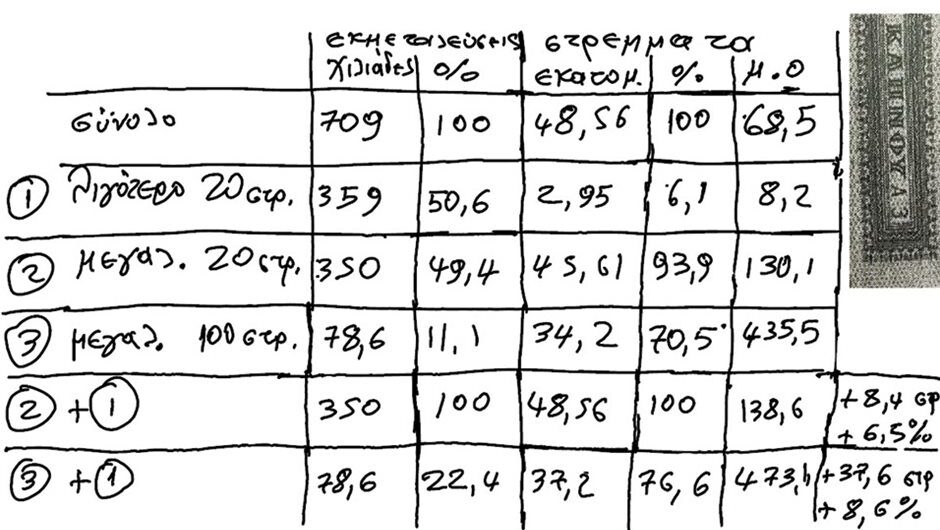 εκμεταλεύσεις στρεμματα
χιλιάδες % εκατομ. % μ.ο
σύνολο 709 100 48,56 100 68,5
① λιγότερο 20 στρ. 359 50,6 2,95 6,1 8,2
② μεγαλ. 20 στρ. 350 49,4 45,61 93,9 130,1
③ μεγαλ. 100 στρ. 78,6 11,1 34,2 70,5 435,5
② + ① 350 100 48,56 100 138,6 +8,4 στρ
+ 6,5%
③ + ① 78,6 22,4 37,2 76,6 473,1 +37,6 στρ
+ 8,6%